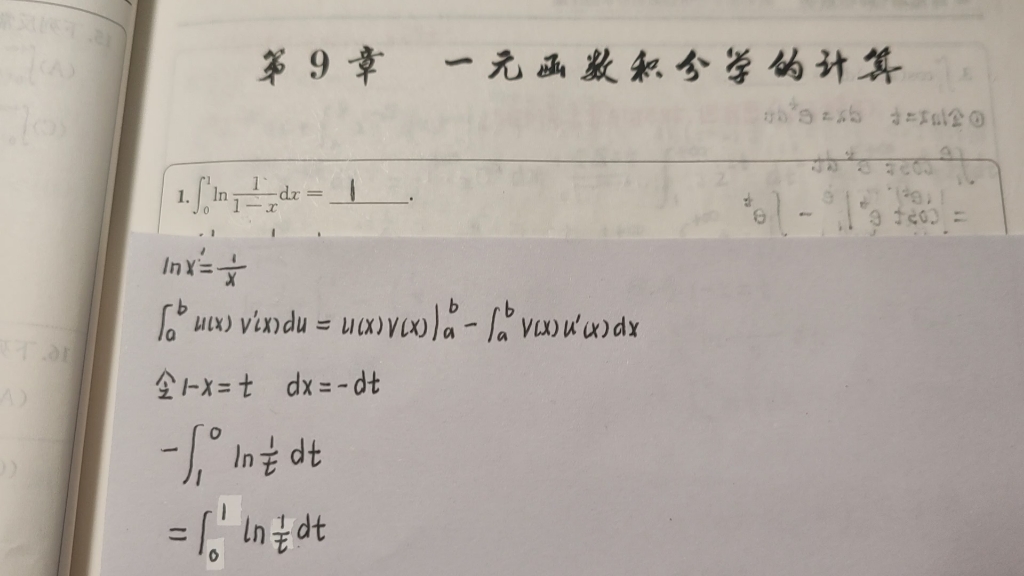 第9章 一元函数积分学的计算
1. ∫₀¹ ln 1/(1−x) dx = 1.
lnx′ = 1/x
∫ₐᵇ u(x) v′(x) du = u(x)v(x)|ₐᵇ − ∫ₐᵇ v(x)u′(x)dx
令 1-x = t dx = -dt
−∫₁⁰ ln 1/t dt
= ∫₀¹ ln 1/t dt